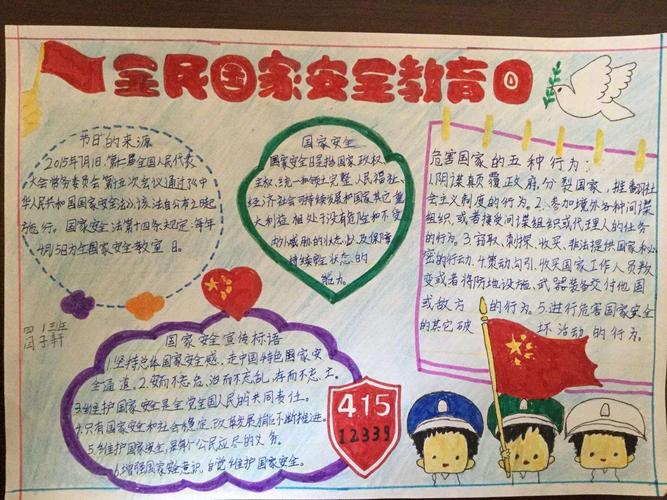 全民国家安全教育日
节日的来源
2015年7月1日,第十二届全国人民代表
大会常务委员会第十五次会议通过《中
华人民共和国国家安全法》,该法自公布之日起
施行。国家安全法第十四条规定:每年
4月15日为全国家安全教室日。
国家安全
国家安全日是指国家政权、
主权、统一和领土完整、人民福祉、
经济社会可持续发展和国家其它重
大利益相处于没有危险和不受
内外威胁的状态,以及保障
持续安全状态的
能力。
危害国家的五种行为:
1.阴谋颠覆政府,分裂国家,推翻社
会主义制度的行为。2.参加境外各种间谍
组织,或者接受间谍组织或代理人的任务
的行为。3.窃取、刺探、收买、非法提供国家秘
密的行动。4.策动勾引、收买国家工作人员叛
变或者将防地设施、武器装备交付他国
或敌方的行为。5.进行危害国家安全
的其它破坏活动的行为。
四(三)班
闫子轩
国家安全宣传标语
1.坚持总体国家安全感,走中国特色国家安
全道道,2.安而不忘危,治而不忘乱,存而不忘亡。
3.维护国家安全是全党全国人民的共同责任。
4.只有国家安全和社会稳定,改革发展才能不断推进。
5.维护国家安全,是每个公民应尽的义务。
6.增强国家安意识,自觉维护国家安全。
415
12339